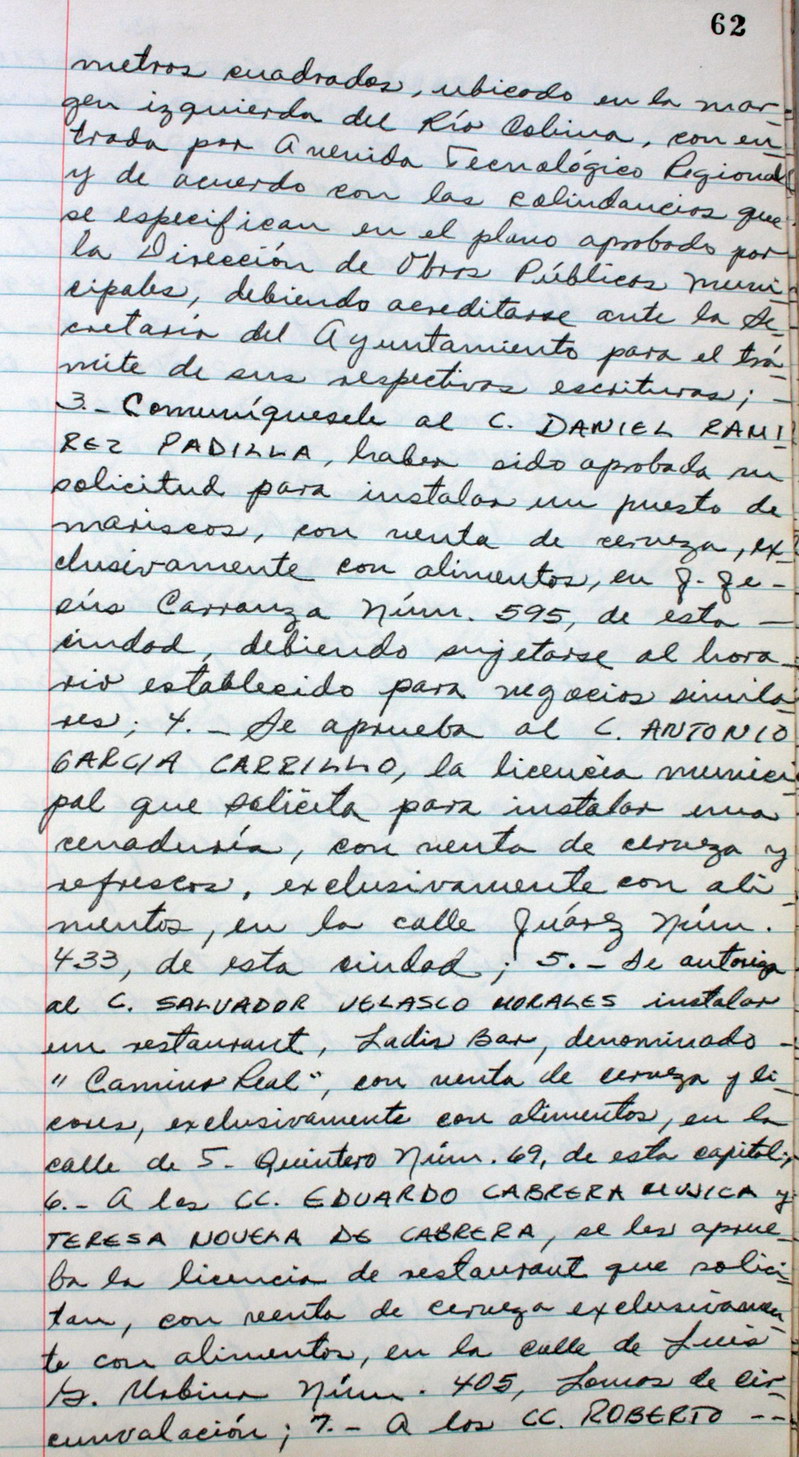 62
metros cuadrados, ubicado en la mar-
gen izquierda del Río Colima, con en-
trada por Avenida Tecnológico Regional
y de acuerdo con las colindancias que
se especifican en el plano aprobado por
la Dirección de Obras Públicas Muni-
cipales, debiendo acreditarse ante la Se-
cretaría del Ayuntamiento para el trá-
mite de sus respectivas escrituras; -
3.- Comuníquesele al C. DANIEL RAMI
REZ PADILLA, haber sido aprobada su
solicitud para instalar un puesto de
mariscos, con venta de cerveza, ex-
clusivamente con alimentos, en J. Je-
sús Carranza Núm. 595, de esta -
ciudad, debiendo sujetarse al hora-
rio establecido para negocios simila-
res; 4.- Se aprueba al C. ANTONIO
GARCIA CARRILLO, la licencia munici-
pal que solicita para instalar una
cenaduría, con venta de cerveza y
refrescos, exclusivamente con ali-
mentos, en la calle Juárez Núm.
433, de esta ciudad; 5.- Se autoriza
al C. SALVADOR VELASCO MORALES instalar
un restaurant, Ladis Bar, denominado -
"Camino Real", con venta de cerveza y li-
cores, exclusivamente con alimentos, en la
calle de J. Quintero Núm. 69, de esta capital;
6.- A los CC. EDUARDO CABRERA MUJICA y
TERESA NOVELA DE CABRERA, se les aprue-
ba la licencia de restaurant que solici-
tan, con venta de cerveza exclusivamen-
te con alimentos, en la calle de Luis
G. Urbina Núm. 405, Lomas de Cir-
cunvalación; 7.- A los CC. ROBERTO --